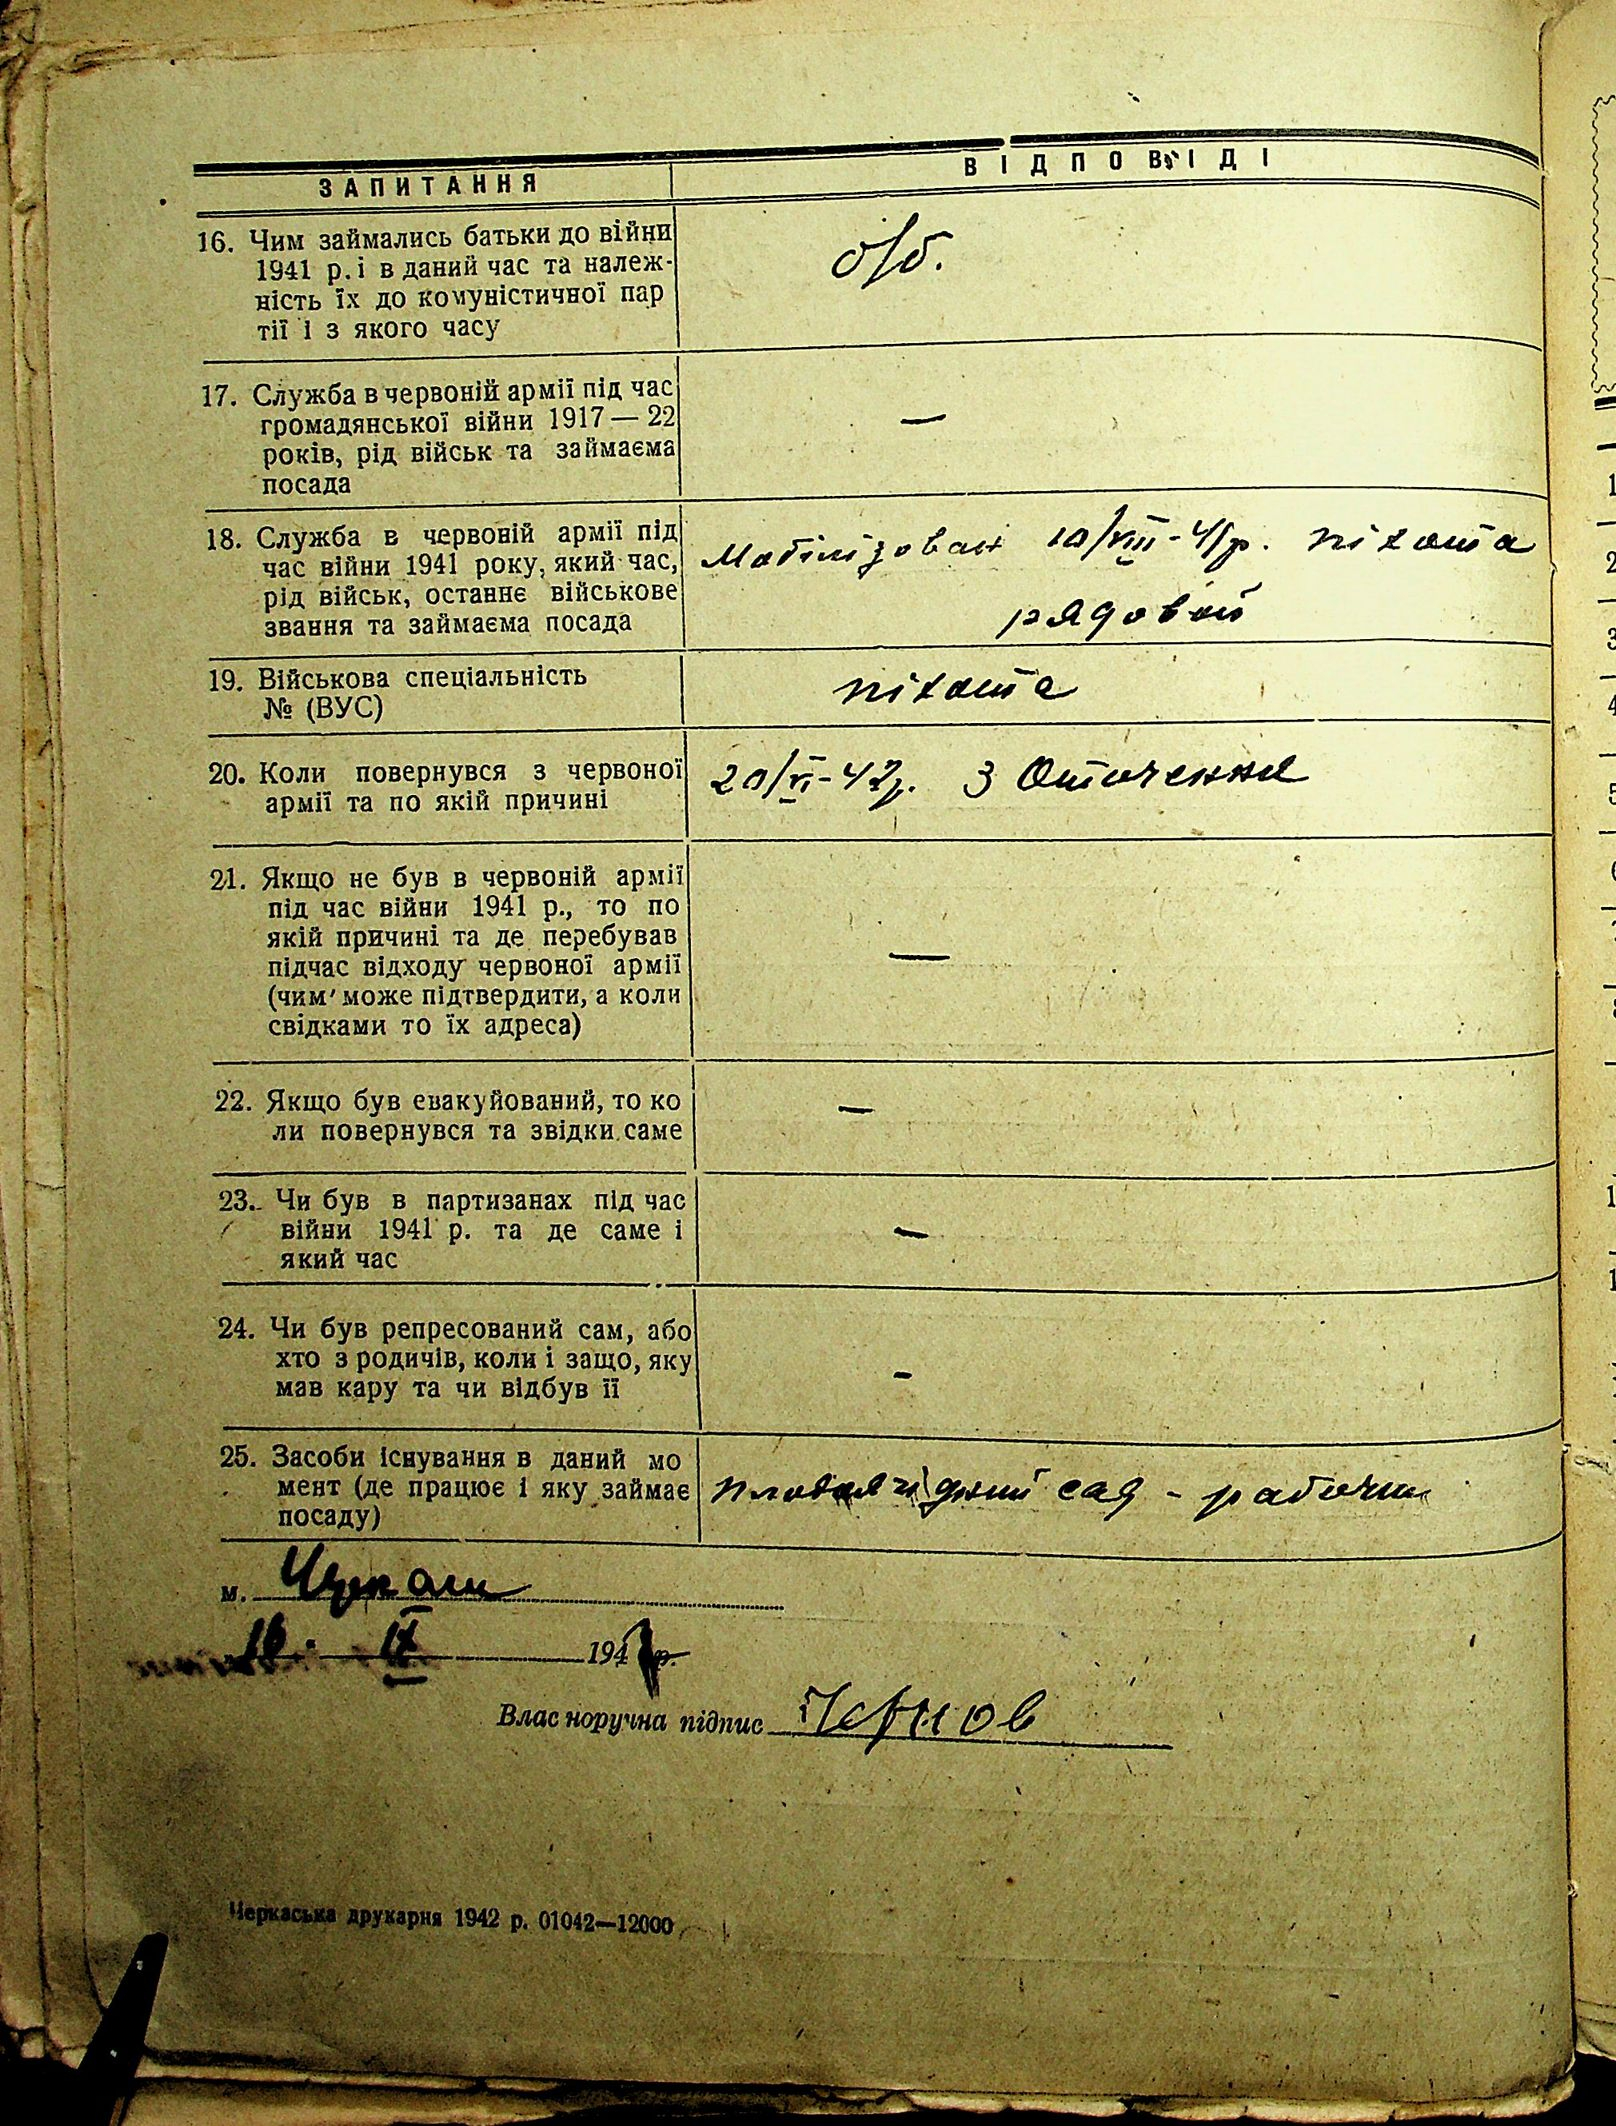 ЗАПИТАННЯ
ВІДПОВІДІ
16. Чим займались батьки до війни
1941 р. і в даний час та належ-
ність їх до комуністичної пар
тії і з якого часу
о/б.
17. Служба в червоній армії під час
громадянської війни 1917 — 22
років, рід військ та займаєма
посада
—
18. Служба в червоній армії під
час війни 1941 року, який час,
рід військ, останнє військове
звання та займаєма посада
Мобілізован 10/VIII-41р. піхота
рядовой
19. Військова спеціальність
№ (ВУС)
піхота
20. Коли повернувся з червоної
армії та по якій причині
20/VI-42р. З Оточення
21. Якщо не був в червоній армії
під час війни 1941 р., то по
якій причині та де перебував
підчас відходу червоної армії
(чим може підтвердити, а коли
свідками то їх адреса)
—
22. Якщо був евакуйований, то ко
ли повернувся та звідки саме
—
23. Чи був в партизанах під час
війни 1941 р. та де саме і
який час
—
24. Чи був репресований сам, або
хто з родичів, коли і защо, яку
мав кару та чи відбув її
-
25. Засоби існування в даний мо
мент (де працює і яку займає
посаду)
сад - рабочий
м.
16. IX 194 р.
Власноручна підпис Чернов
Черкаська друкарня 1942 р. 01042—12000